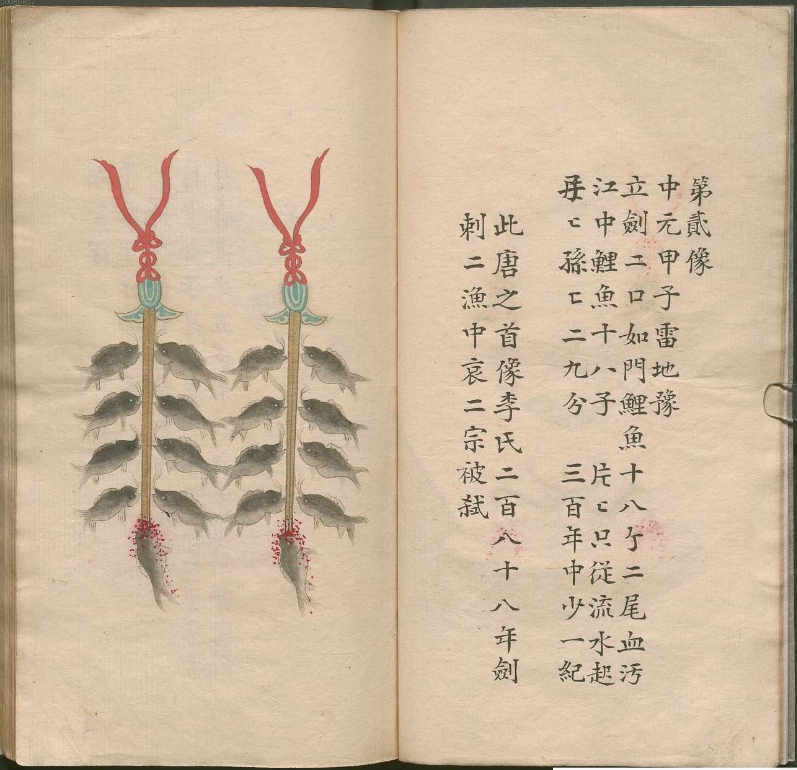 第貳像
中元甲子雷地豫
立劍二口如門鯉魚十八亇二尾血污
江中鯉魚十八子　片〻只從流水起
〻孫〻二九分　三百年中少一紀
此唐之首像李氏二百八十八年劍
刺二漁中哀二宗被弑